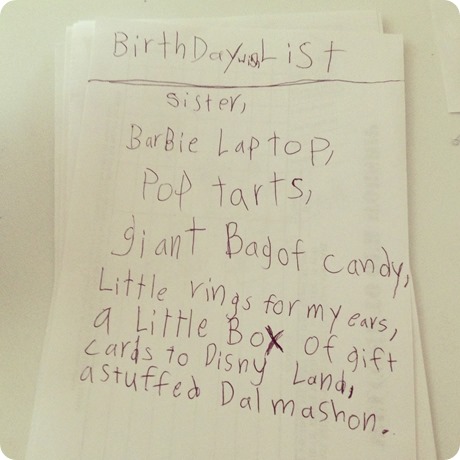 BirthDay wish List
sister,
BarBie Laptop,
Pop tarts,
giant Bag of candy,
Little rings for my ears,
a Little Box of gift
cards to Disny Land,
a stuffed Dalmashon.